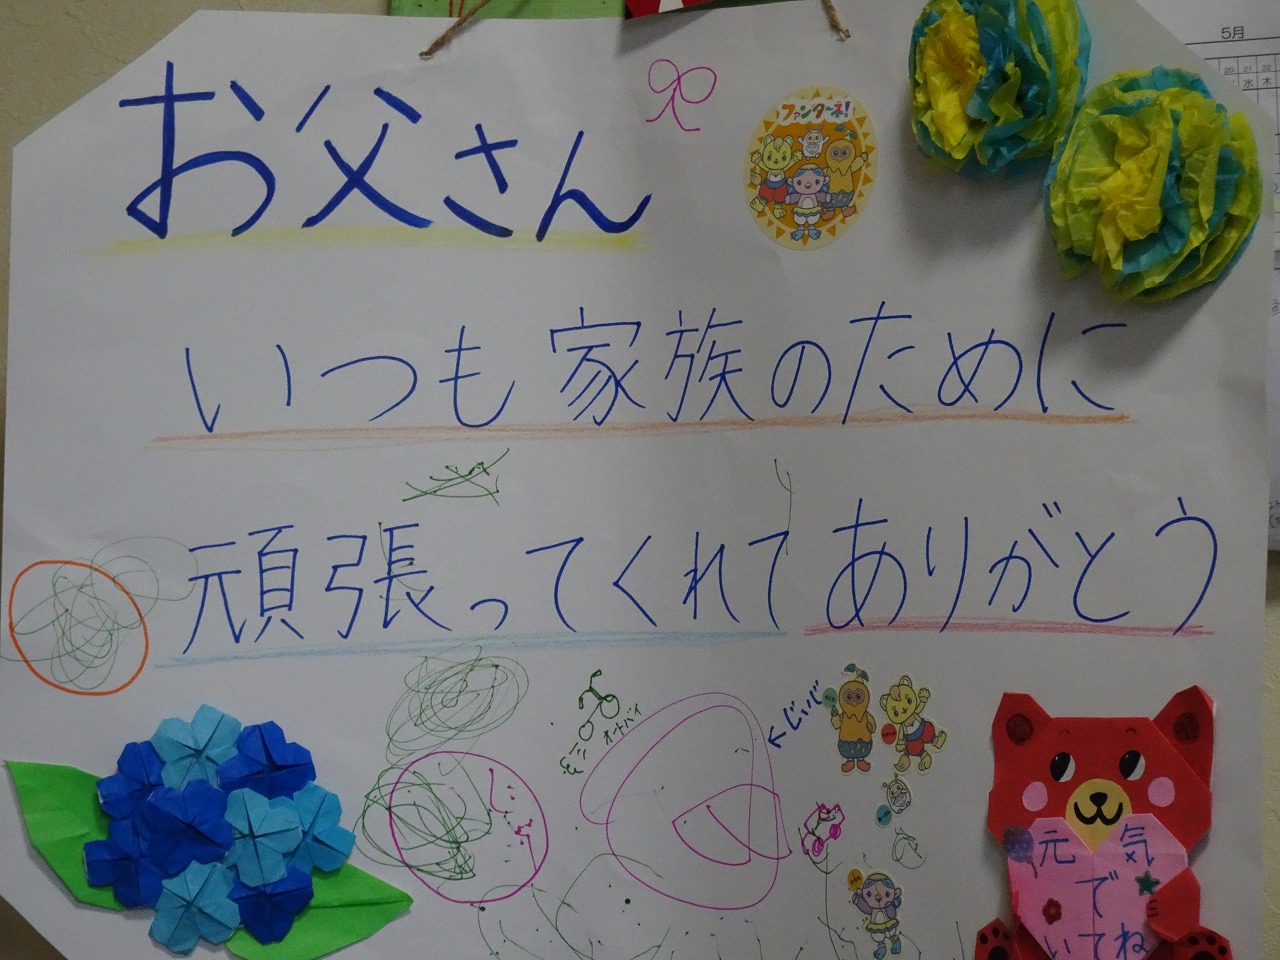 5月
20 21 22
水 木
お父さん
ファンターネ!
いつも家族のために
頑張ってくれてありがとう
オートバイ
←じぃじ
元気
で
いてね